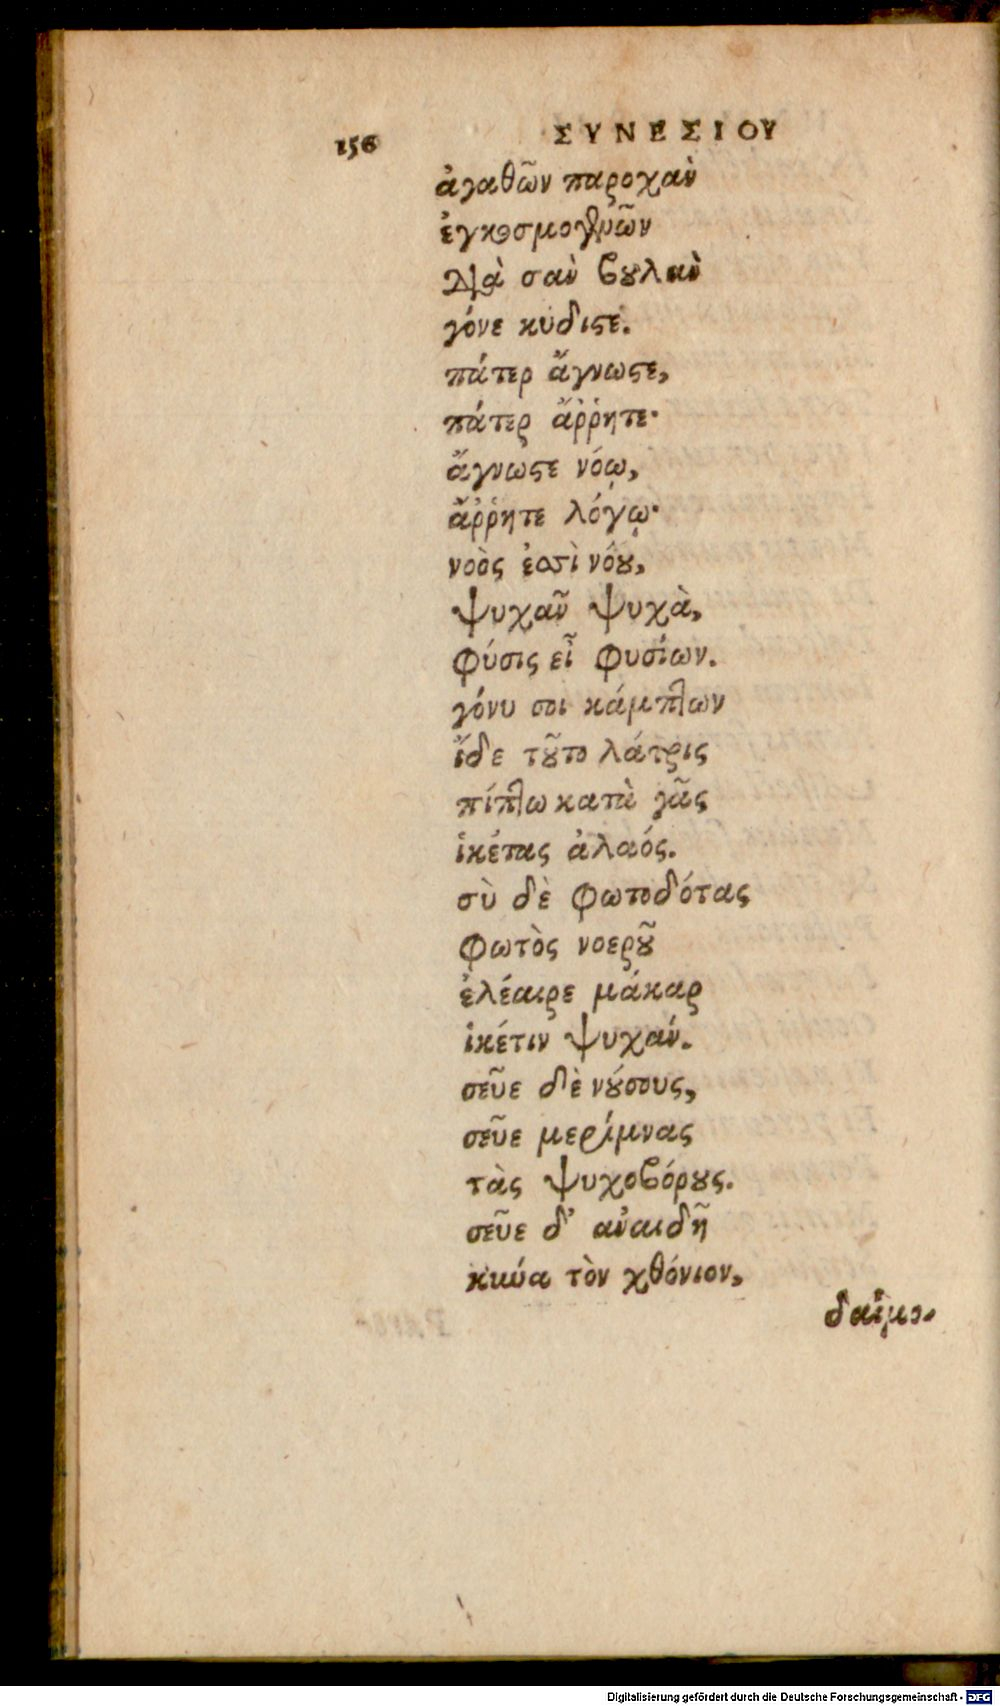 156 ΣΥΝΕΣΙΟΥ
ἀγαθῶν παροχὰν
ἐγκοσμογόνων
διὰ σὰν βουλὰν
γόνε κύδιστε.
πάτερ ἄγνωστε,
πάτερ ἄῤῥητε·
ἄγνωστε νόῳ,
ἄῤῥητε λόγῳ·
νοὸς ἐστὶ νόου,
ψυχᾶν ψυχὰ,
φύσις εἶ φυσίων.
γόνυ σοι κάμπτων
ἴδε τοῦτο λάτρις
πίπτω κατὰ γᾶς
ἱκέτας ἀλαός.
σὺ δὲ φωτοδότας
φωτὸς νοεροῦ
ἐλέαιρε μάκαρ
ἱκέτιν ψυχάν.
σεῦε δὲ νούσους,
σεῦε μερίμνας
τὰς ψυχοβόρους.
σεῦε δ' ἀναιδῆ
κύνα τὸν χθόνιον,
δαίμο-
Digitalisierung gefördert durch die Deutsche Forschungsgemeinschaft - DFG